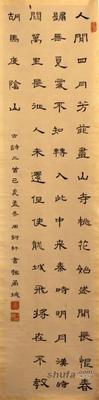 人間四月芳菲盡山寺桃花始盛開長恨春
歸無覓處不知轉入此中來秦時明月漢時
關萬里長征人未還但使龍城飛將在不教
胡馬度陰山
古詩二首己亥孟冬